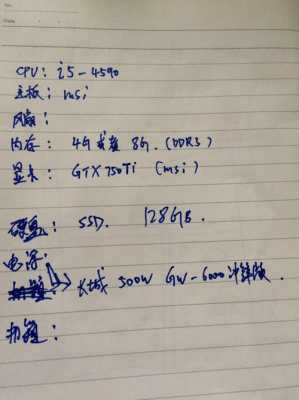 CPU: i5-4590
主板: msi
风扇:
内存: 4G 或者 8G. (DDR3)
显卡: GTX 750Ti (msi)
硬盘: SSD. 128GB.
电源:
长城 500W GW-6000 冲锋版.
机箱: